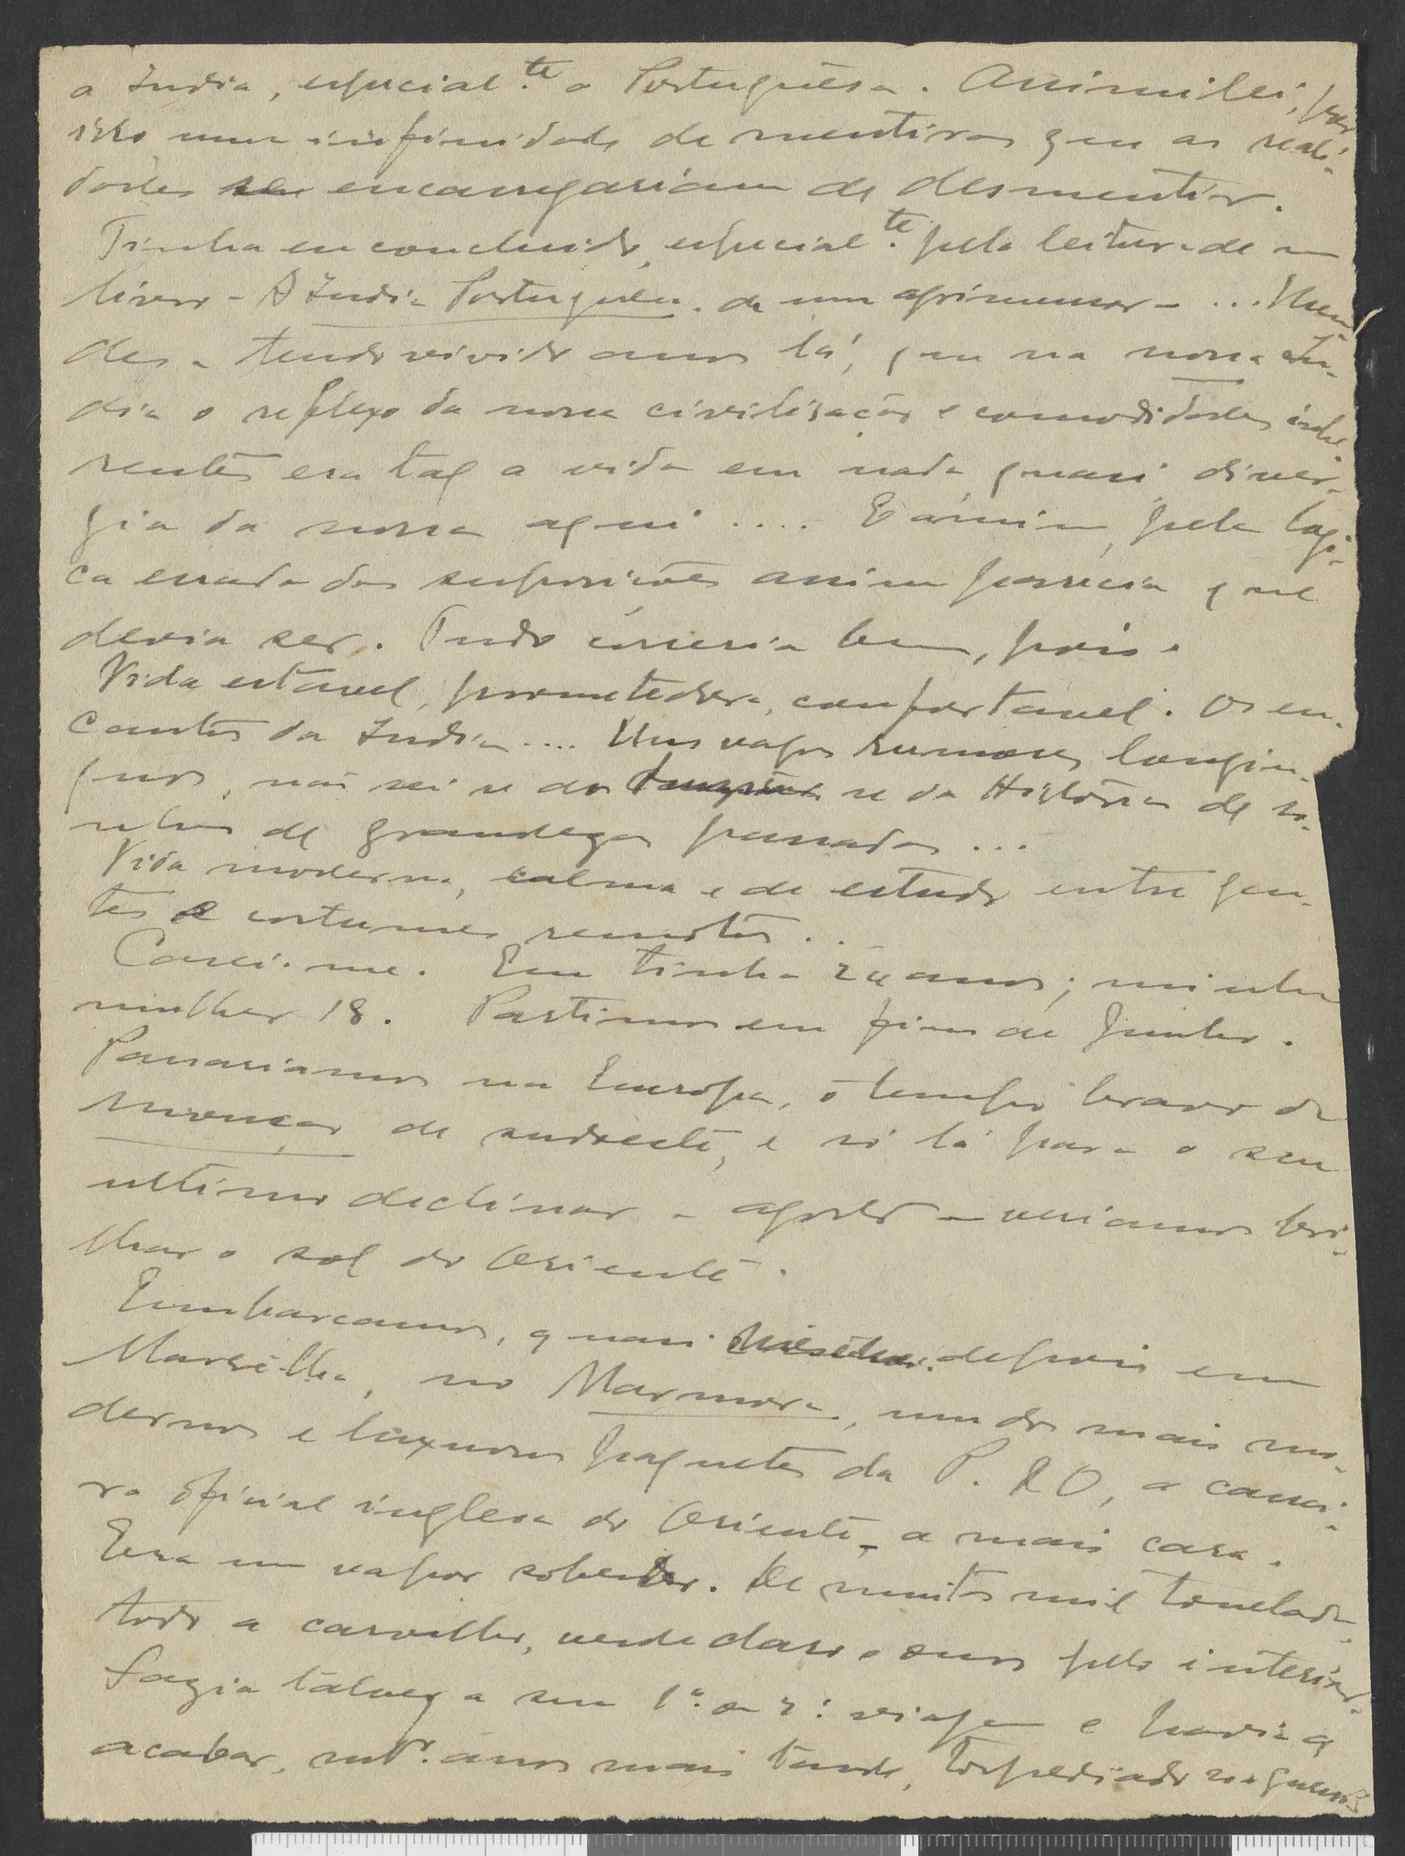 a India, especial.te a Portuguêsa. Assimilei, por
isso uma infinidade de mentiras que as reali-
dades se encarregariam de desmentir.
Tinha eu concluido, especial.te pela leitura de um
livro - A India Portuguesa. de um agrimensor - ...
des - tendo vivido anos lá, que na nossa In-
dia o reflexo da nossa civilisação e comodidades ine-
rentes era tal a vida em nada quasi diver-
gia da nossa aqui .... E a mim, pela logi-
ca errada das suposições assim parecia que
devia ser. Tudo correria bem, pois.
Vida estavel, prometedora, confortavel. Os en-
cantos da India.... Uns vagos rumores longin-
quos, não sei se da se da História de so-
nhos de grandezas passadas ...
Vida moderna, calma e de estudo entre gen-
tes e costumes remotos ..
Casei-me. Eu tinha 24 anos; minha
mulher 18. Partimos em fins de Junho.
Passariamos na Europa, o tempo bravo da
monção de sudoeste, e só lá para o seu
ultimo declinar - agosto - veriamos bri-
lhar o sol do Oriente.
Embarcamos, quasi depois em
Marselha, no Marmora, um dos mais mo-
dernos e luxuosos paquetes da P. & O, a carrei-
ra oficial inglesa do Oriente - a mais cara.
Era um vapor soberbo. De muitas mil toneladas,
todo a carvalho, verde claro e ouro pelo interior.
Fazia talvez a sua 1ª ou 2ª viagem e havia de
acabar, mtos. anos mais tarde, torpediado na guerra